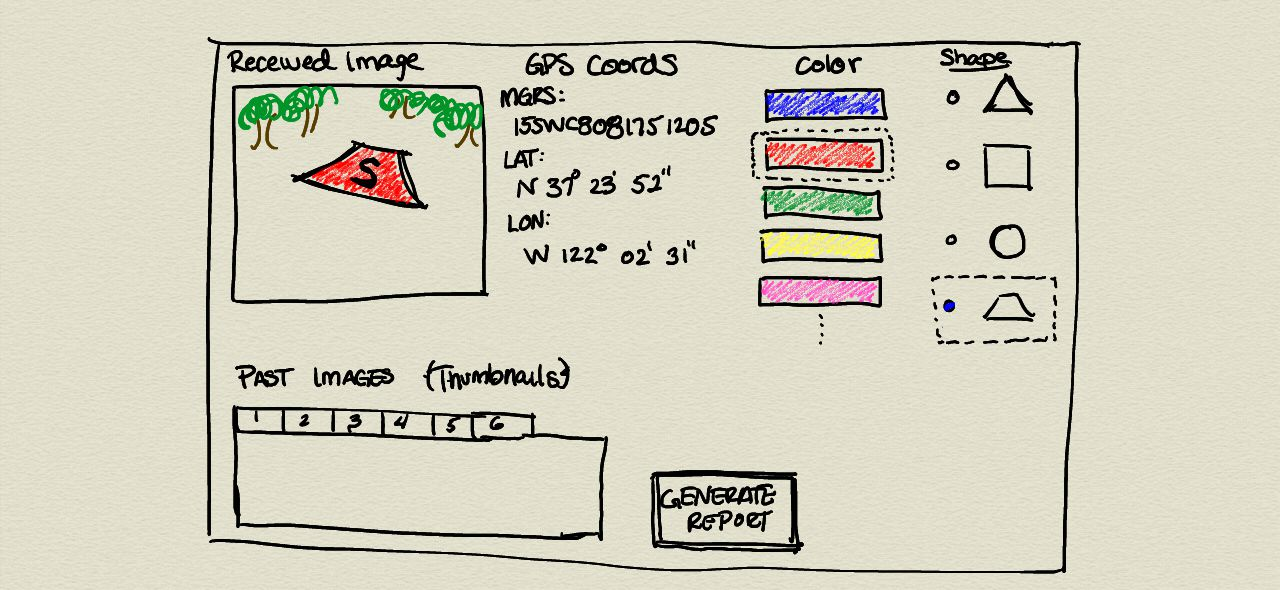 Received Image
S
GPS Coords
MGRS:
15SWC8081751205
LAT:
N 37° 23' 52"
LON:
W 122° 02' 31"
Color
Shape
PAST IMAGES (Thumbnails)
1 2 3 4 5 6
GENERATE
REPORT